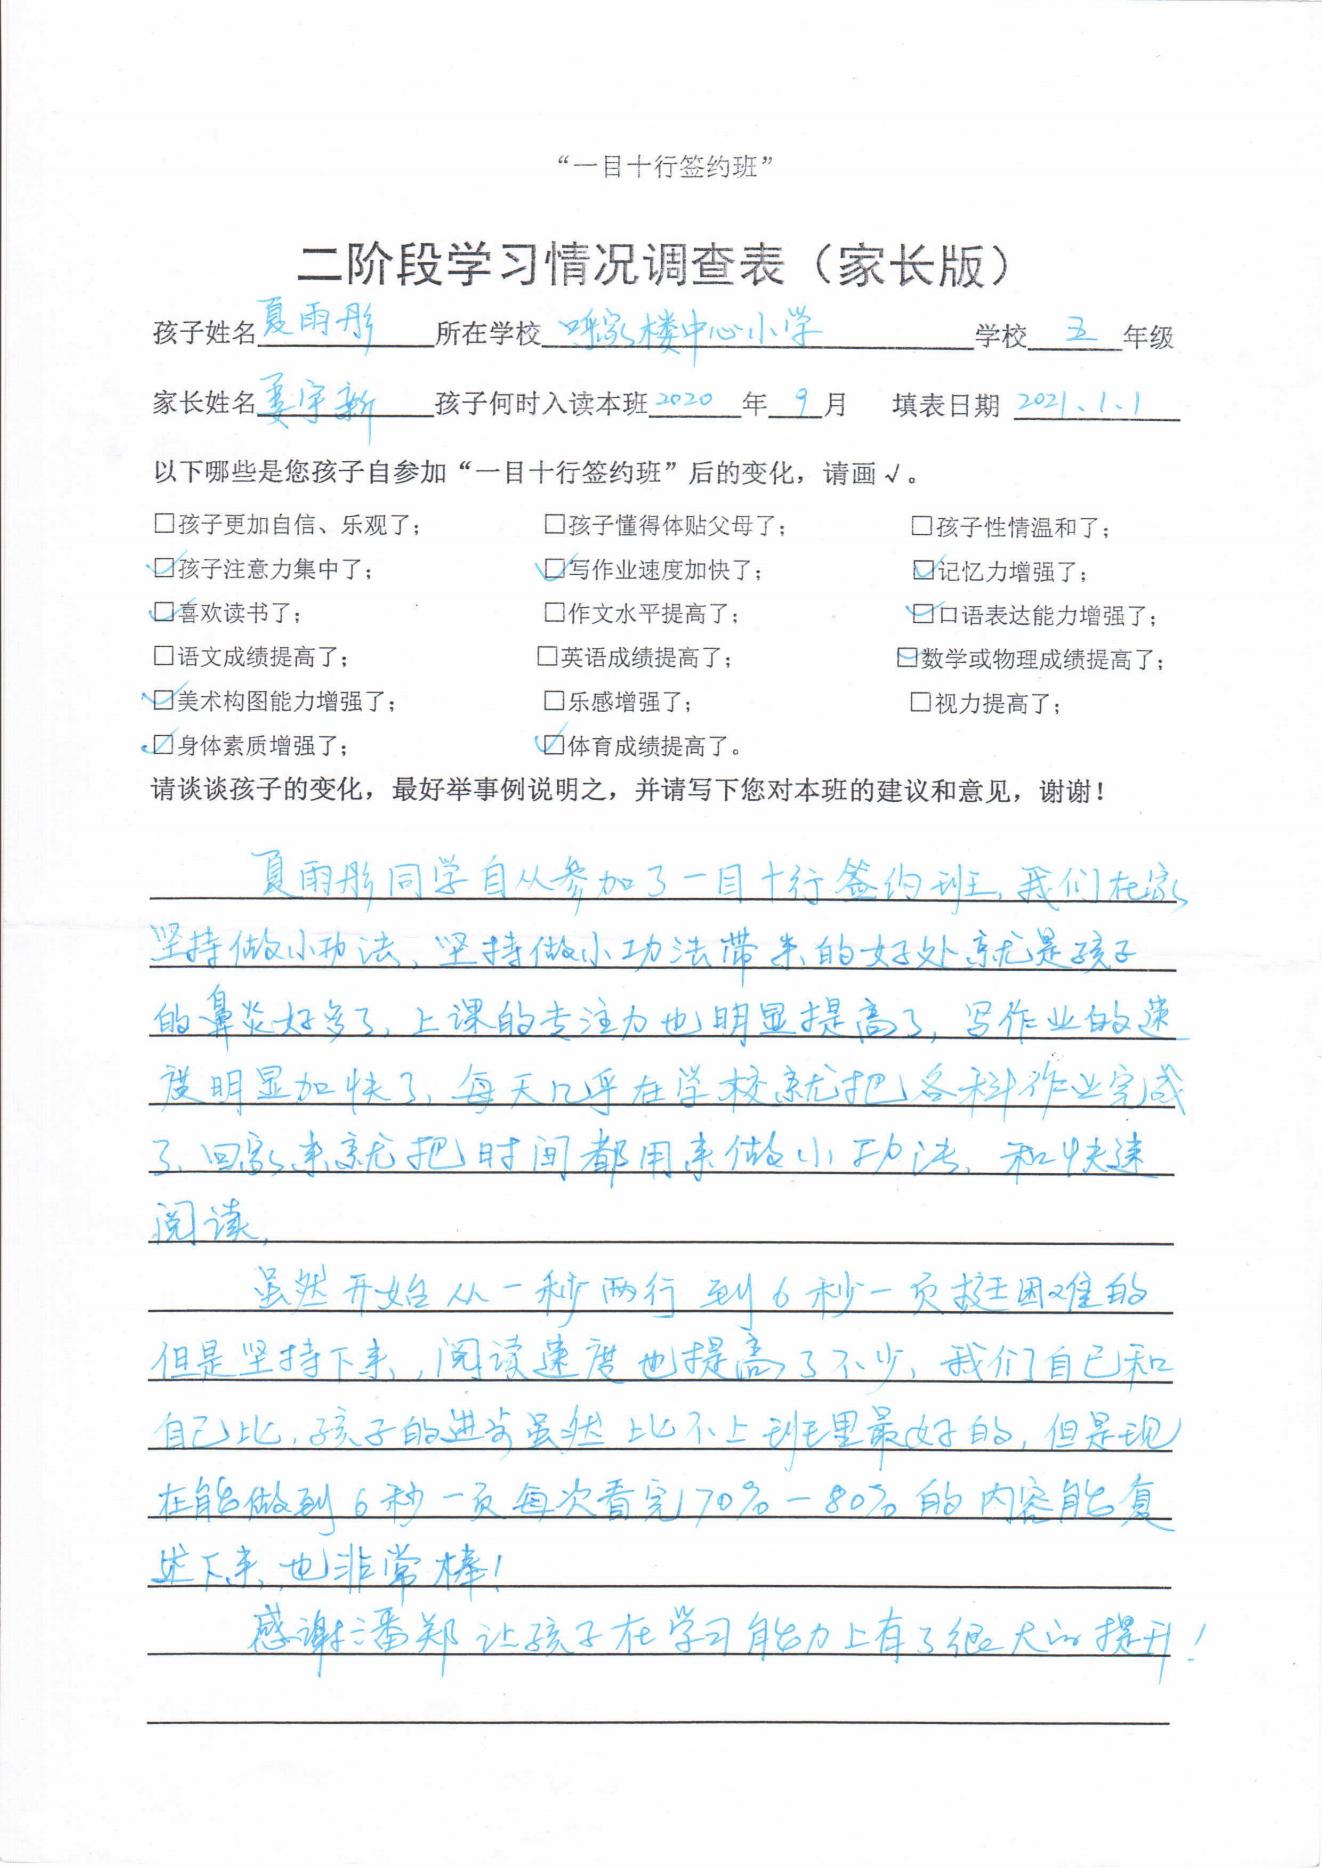 “一目十行签约班”
二阶段学习情况调查表（家长版）
孩子姓名 夏雨彤 所在学校 呼家楼中心小学 学校 五 年级
家长姓名 姜宇新 孩子何时入读本班 2020 年 9 月 填表日期 2021.1.1
以下哪些是您孩子自参加“一目十行签约班”后的变化，请画√。
□孩子更加自信、乐观了； □孩子懂得体贴父母了； □孩子性情温和了；
☑孩子注意力集中了； ☑写作业速度加快了； ☑记忆力增强了；
☑喜欢读书了； □作文水平提高了； ☑口语表达能力增强了；
□语文成绩提高了； □英语成绩提高了； ☑数学或物理成绩提高了；
☑美术构图能力增强了； □乐感增强了； □视力提高了；
☑身体素质增强了； ☑体育成绩提高了。
请谈谈孩子的变化，最好举事例说明之，并请写下您对本班的建议和意见，谢谢！
夏雨彤同学自从参加了一目十行签约班，我们在家
坚持做小功法、坚持做小功法带来的好处就是孩子
的鼻炎好多了，上课的专注力也明显提高了，写作业的速
度明显加快了，每天几乎在学校就把各科作业完成
了，回家来就把时间都用来做小功法，和快速
阅读，
虽然开始从一秒两行到6秒一页挺困难的
但是坚持下来，阅读速度也提高了不少，我们自己和
自己比，孩子的进步虽然比不上班里最好的，但是现
在能做到6秒一页每次看完70%—80%的内容能复
述下来，也非常棒！
感谢潘郑让孩子在学习能力上有了很大的提升！